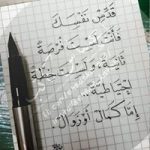 قَدِّسْ نَفْسَكَ
فَأَنْتَ لَسْتَ فُرْصَةً
ثَانِيَةً ، وَلَسْتَ خُطَّةً
احْتِيَاطِيَّةً ..
إِمَّا كَمَالٌ أَوْ زَوَالٌ .